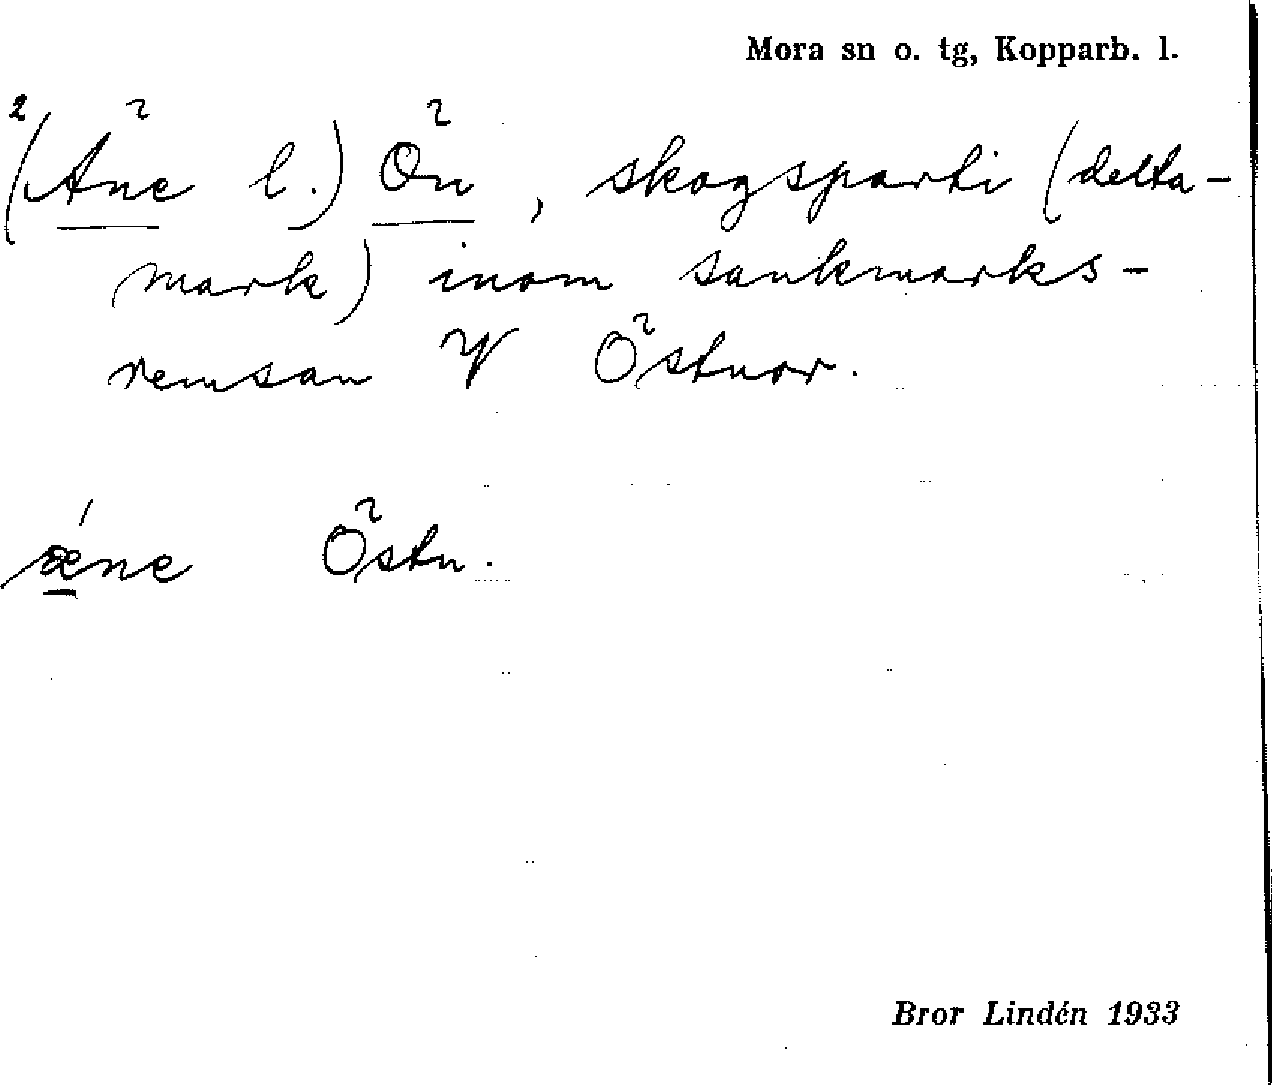 Mora sn o. tg, Kopparb. l.
2(Äne l.) Ön, skogsparti (delta-
mark) inom sankmarks-
remsan V Östnor.
ǽne Östn.
Bror Lindén 1933